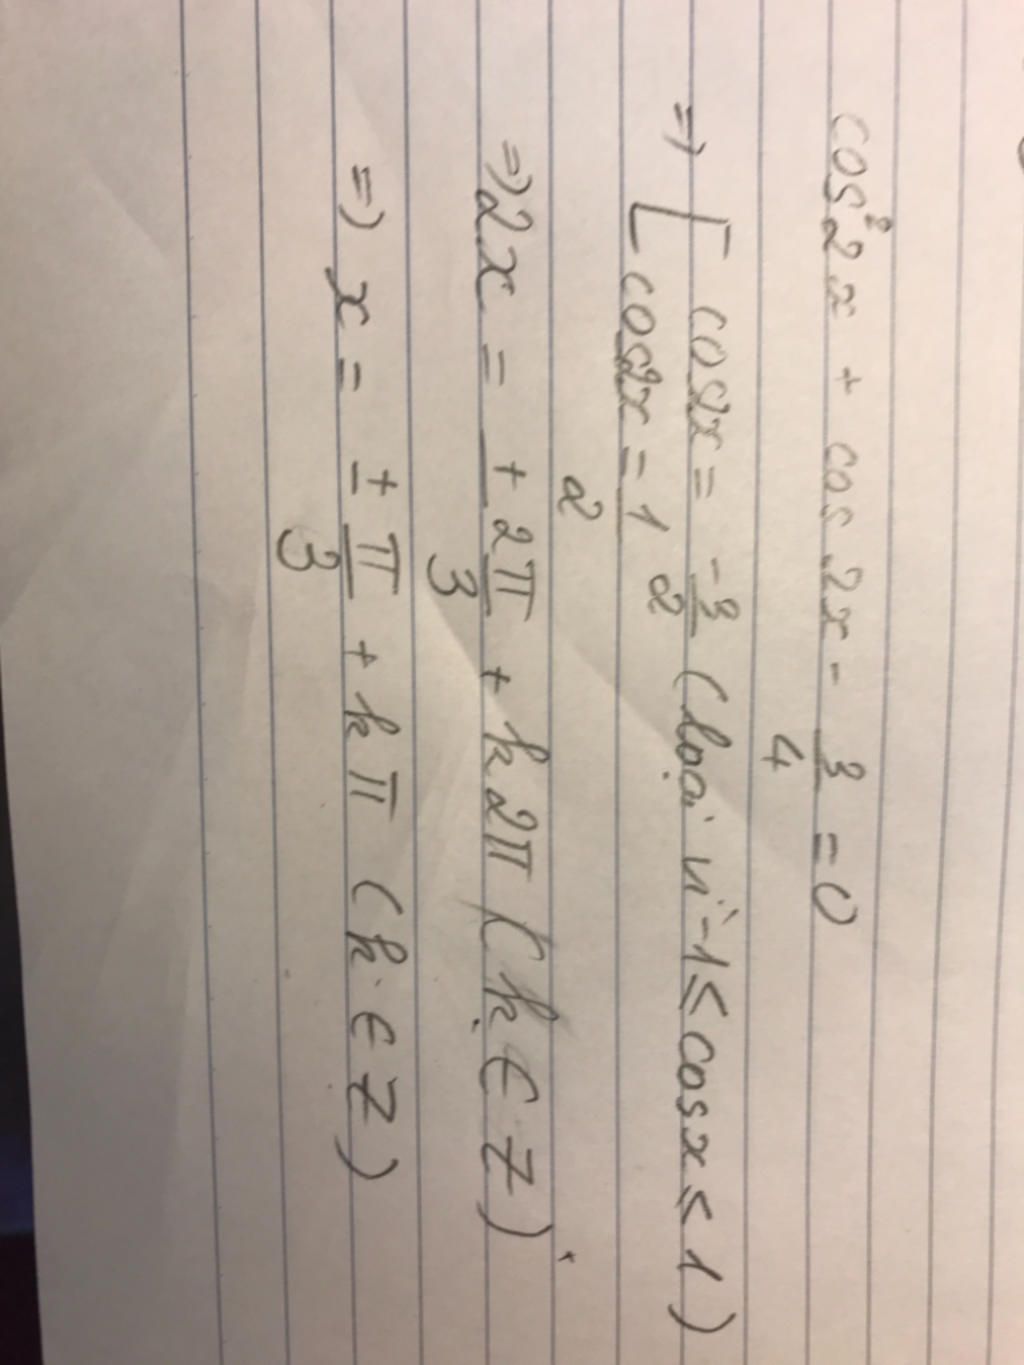 cos²2x + cos 2x - 3/4 = 0
=> [ cos2x = -3/2 (loại vì -1 ≤ cosx ≤ 1)
cos2x = 1/2
=> 2x = ± 2π/3 + k2π (k ∈ Z)
=> x = ± π/3 + kπ (k ∈ Z)